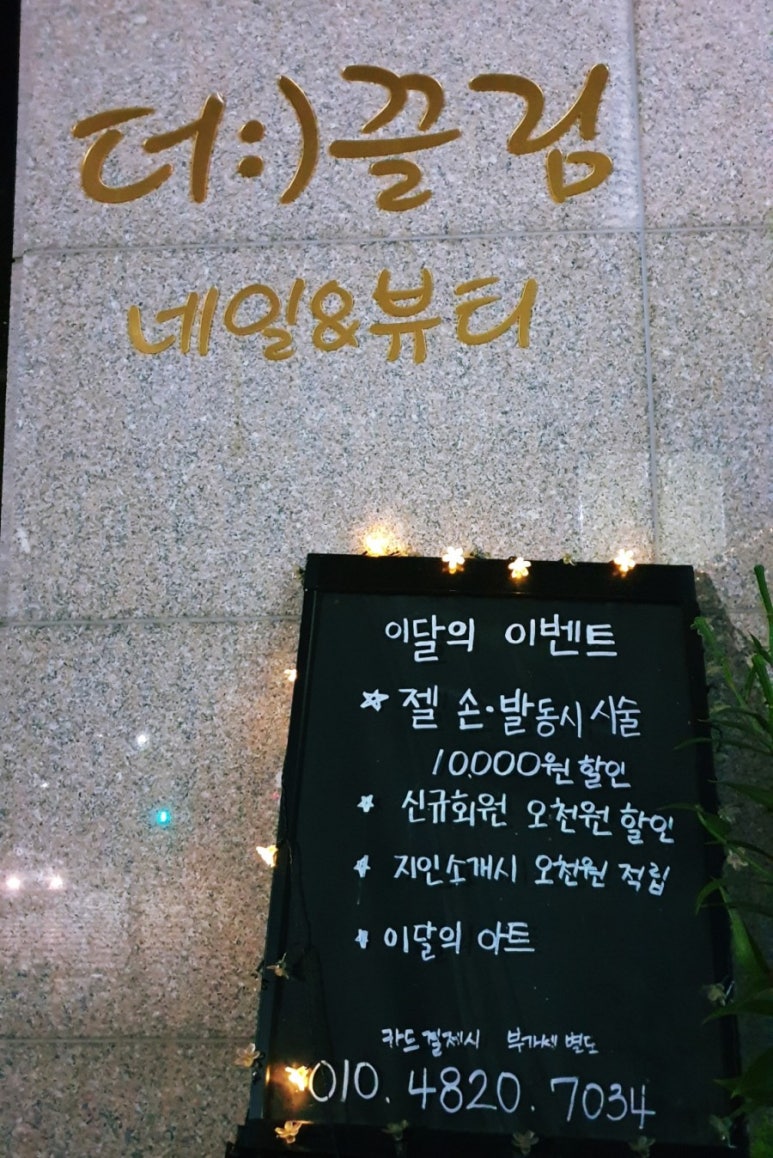 더:)끌림
네일&뷰티
이달의 이벤트
☆ 젤 손·발동시 시술
10.000원 할인
신규회원 오천원 할인
지인소개시 오천원 적립
이달의 아트
카드결제시 부가세 별도
010. 4820. 7034